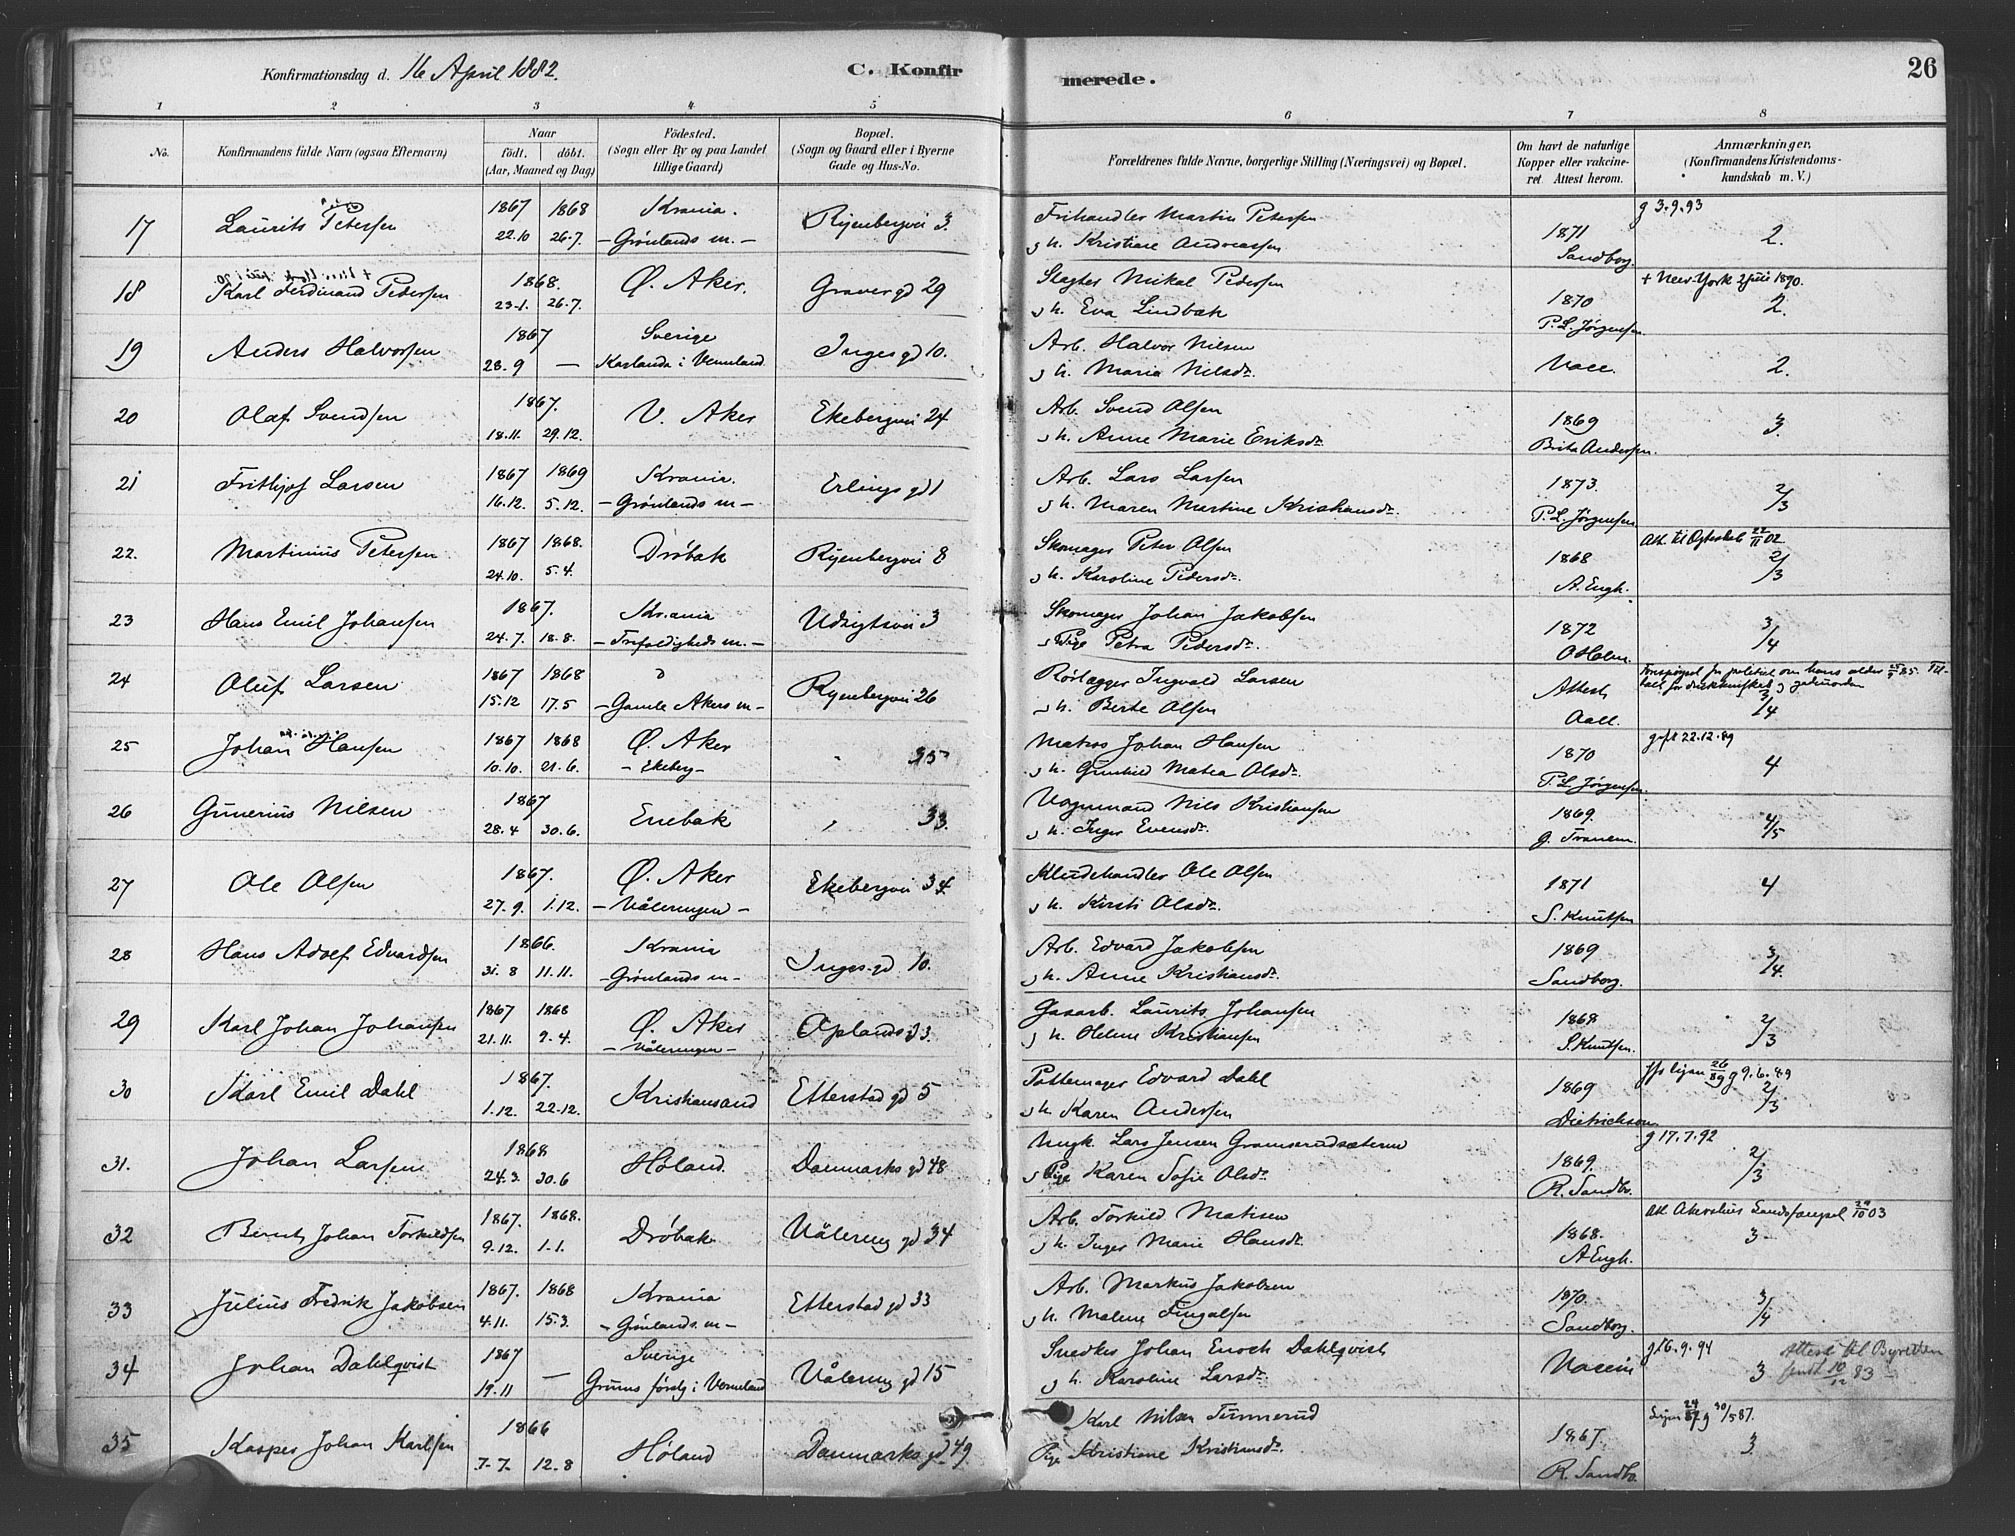 Konfirmationsdag d. 16 April 1882.
C. Konfirmerede.
26
1 2 3 4 5 6 7 8
No. Konfirmandens fulde Navn (ogsaa Efternavn)
Naar födt. döbt. (Aar, Maaned og Dag)
Födested. (Sogn eller By og paa Landet tillige Gaard)
Bopæl. (Sogn og Gaard eller i Byerne Gade og Hus-No.
Forældrenes fulde Navne, borgerlige Stilling (Næringsvei) og Bopæl.
Om havt de naturlige Kopper eller vakcineret Attest herom.
Anmærkninger. (Konfirmandens Kristendomskundskab m. V.)
17 Laurits Petersen 1867 1868 Krania. Ryenbergvei 3. Frihandler Martin Petersen 1871 g 3.9.93
22.10 26.7. – Grønlands m. – h. Kristiane Andreassen Sandborg. 2.
18 Karl Ferdinand Pedersen 1868. Ø. Aker. Graver gd 29 Slagter Mikal Pedersen 1870 + New-York 2 juli 1890.
23.1. 26.7. h. Eva Lindbæk P. L. Jørgensen 2.
19 Anders Halvorsen 1867 Sverige Inges gd 10. Arb. Halvor Nilsen Vacc. 2.
28.9 – Karlanda i Vermland h. Maria Nilsdr.
20 Olaf Svendsen 1867. V. Aker Ekebergvei 24 Arb. Svend Olsen 1869 3.
18.11. 29.12. h. Anne Marie Eriksdr. Brita Andersen.
21 Frithjof Larsen 1867 1869 Krania. Erlings gd 1 Arb. Lars Larsen 1873. 2/3
16.12. 5.12. – Grønlands m – h. Maren Martine Kristiansdr. P. L. Jørgensen
22. Martinius Petersen 1867 1868. Drøbak Ryenbergvei 8 Skomager Peter Olsen 1868 22/11 02
24.10. 5.4. h. Karoline Pedersdr. A. Engh. 2/3
23 Hans Emil Johansen 1867. Krania Udsigtsvei 3 Skomager Johan Jakobsen 1872 3/4
24.7. 18.8. – Trefoldigheds m. – Pige Petra Pedersdr. O Holm
24 Oluf Larsen 1867 1868 Ryenbergvei 26 Rørlægger Ingvald Larsen Attest
15.12 17.5 – Gamle Akers m – h. Berte Olsen Aall. 3/4
25 Johan Hansen 1867 1868 Ø. Aker 35 Matros Johan Hansen 1870 gift 22.12.89
10.10. 21.6. – Ekeberg – h. Gunhild Matea Olsdr. P. L. Jørgensen 4
26 Gunerius Nilsen 1867 Enebak 33. Vognmand Nils Kristiansen 1869. 4/5
28.4 30.6. h. Inger Evensdr. G. Tranem
27 Ole Olsen 1867. Ø. Aker Ekebergvei 34 Kludehandler Ole Olsen 1871 4
27.9. 1.12. – Våleringen – h. Kirsti Olsdr. S. Knutsen
28 Hans Adolf Edvardsen 1866. Krania Inges gd 10. Arb. Edvard Jakobsen 1869 3/4
31.8 11.11. Grønlands m – h. Anne Kristiansdr. Sandborg.
29 Karl Johan Johansen 1867 1868 Ø. Aker Oplandsgd 3. Gasarb. Laurits Johansen 1868 2/3
21.11. 9.4. – Våleringen – h. Helene Kristiansen S. Knutsen.
30 Karl Emil Dahl 1867. Kristiansand Etterstad gd 5 Pottemager Edvard Dahl 1869 26/89 g 9.6.89
1.12. 22.12. h. Karen Andersen Dietrichson 2/3
31. Johan Larsen 1868 Høland. Danmarks gd 48 Ungk. Lars Jensen Gramserudsæteren 1869. g 17.7.92
24.3. 30.6 Pige Karen Sofie Olsdr. R. Sandbo. 2/3
32 Bernt Johan Torkildsen 1867. 1868. Drøbak Vålering gd 34 Arb. Torkild Matisen 1868. 29/10 03
9.12. 1.1. h. Inger Marie Hansdr. A Engh. 3
33 Julius Fredrik Jakobsen 1867. 1868 Krania Etterstad gd 33 Arb. Markus Jakobsen 1870. 3/4
4.11. 15.3. – Grønlands. m – h. Malene Fingalsen Sandborg.
34 Johan Dahlqvist 1867 Sverige Vålering gd 15 Snedker Johan Enoch Dahlqvist Vaccin g 16.9.94 Attest til Byretten
19.11 – Grums forsg i Vermland h. Karoline Larsdr. 3 sendt 10/12 83
35 Kasper Johan Karlsen 1866 Høland Danmarks gd 49. Karl Nilsen Tunnerud 1867. Lysn 24/4 87. g 30/5 87.
7.7. 12.8 Pige Kristiane Kristiansdr. R. Sandbo. 3